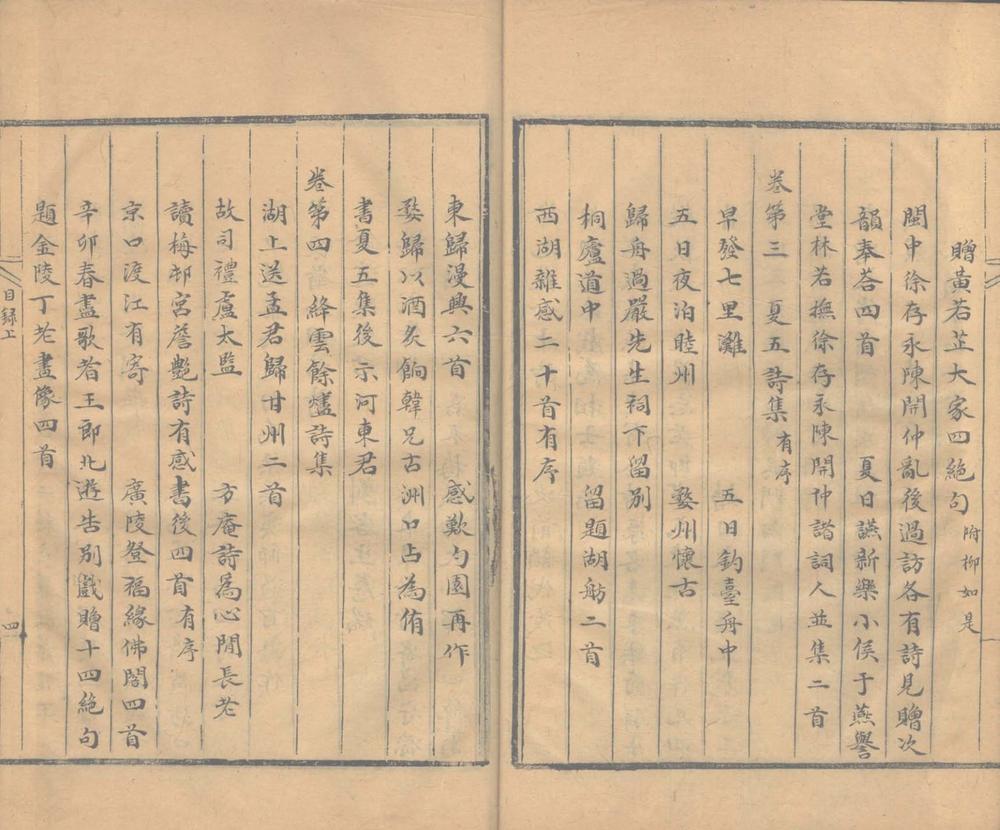 贈黃若芷大家四絕句 附柳如是
閩中徐存永陳開仲亂後過訪各有詩見贈次
韻奉荅四首 夏日讌新樂小侯于燕譽
堂林若撫徐存永陳開仲諸詞人並集二首
卷第三 夏五詩集 有序
早發七里灘 五日釣臺舟中
五日夜泊睦州 婺州懷古
歸舟過嚴先生祠下留別
桐廬道中 留題湖舫二首
西湖雜感二十首有序
東歸漫興六首 感歎勺園再作
婺歸以酒炙餉韓兄古洲口占為侑
書夏五集後示河東君
卷第四 絳雲餘燼詩集
湖上送孟君歸甘州二首
故司禮盧太監 方庵詩為心閒長老
讀梅邨宮詹艷詩有感書後四首 有序
京口渡江有寄 廣陵登福緣佛閣四首
辛卯春盡歌者王郎北遊告別戲贈十四絕句
題金陵丁老畫像四首
目録上
四